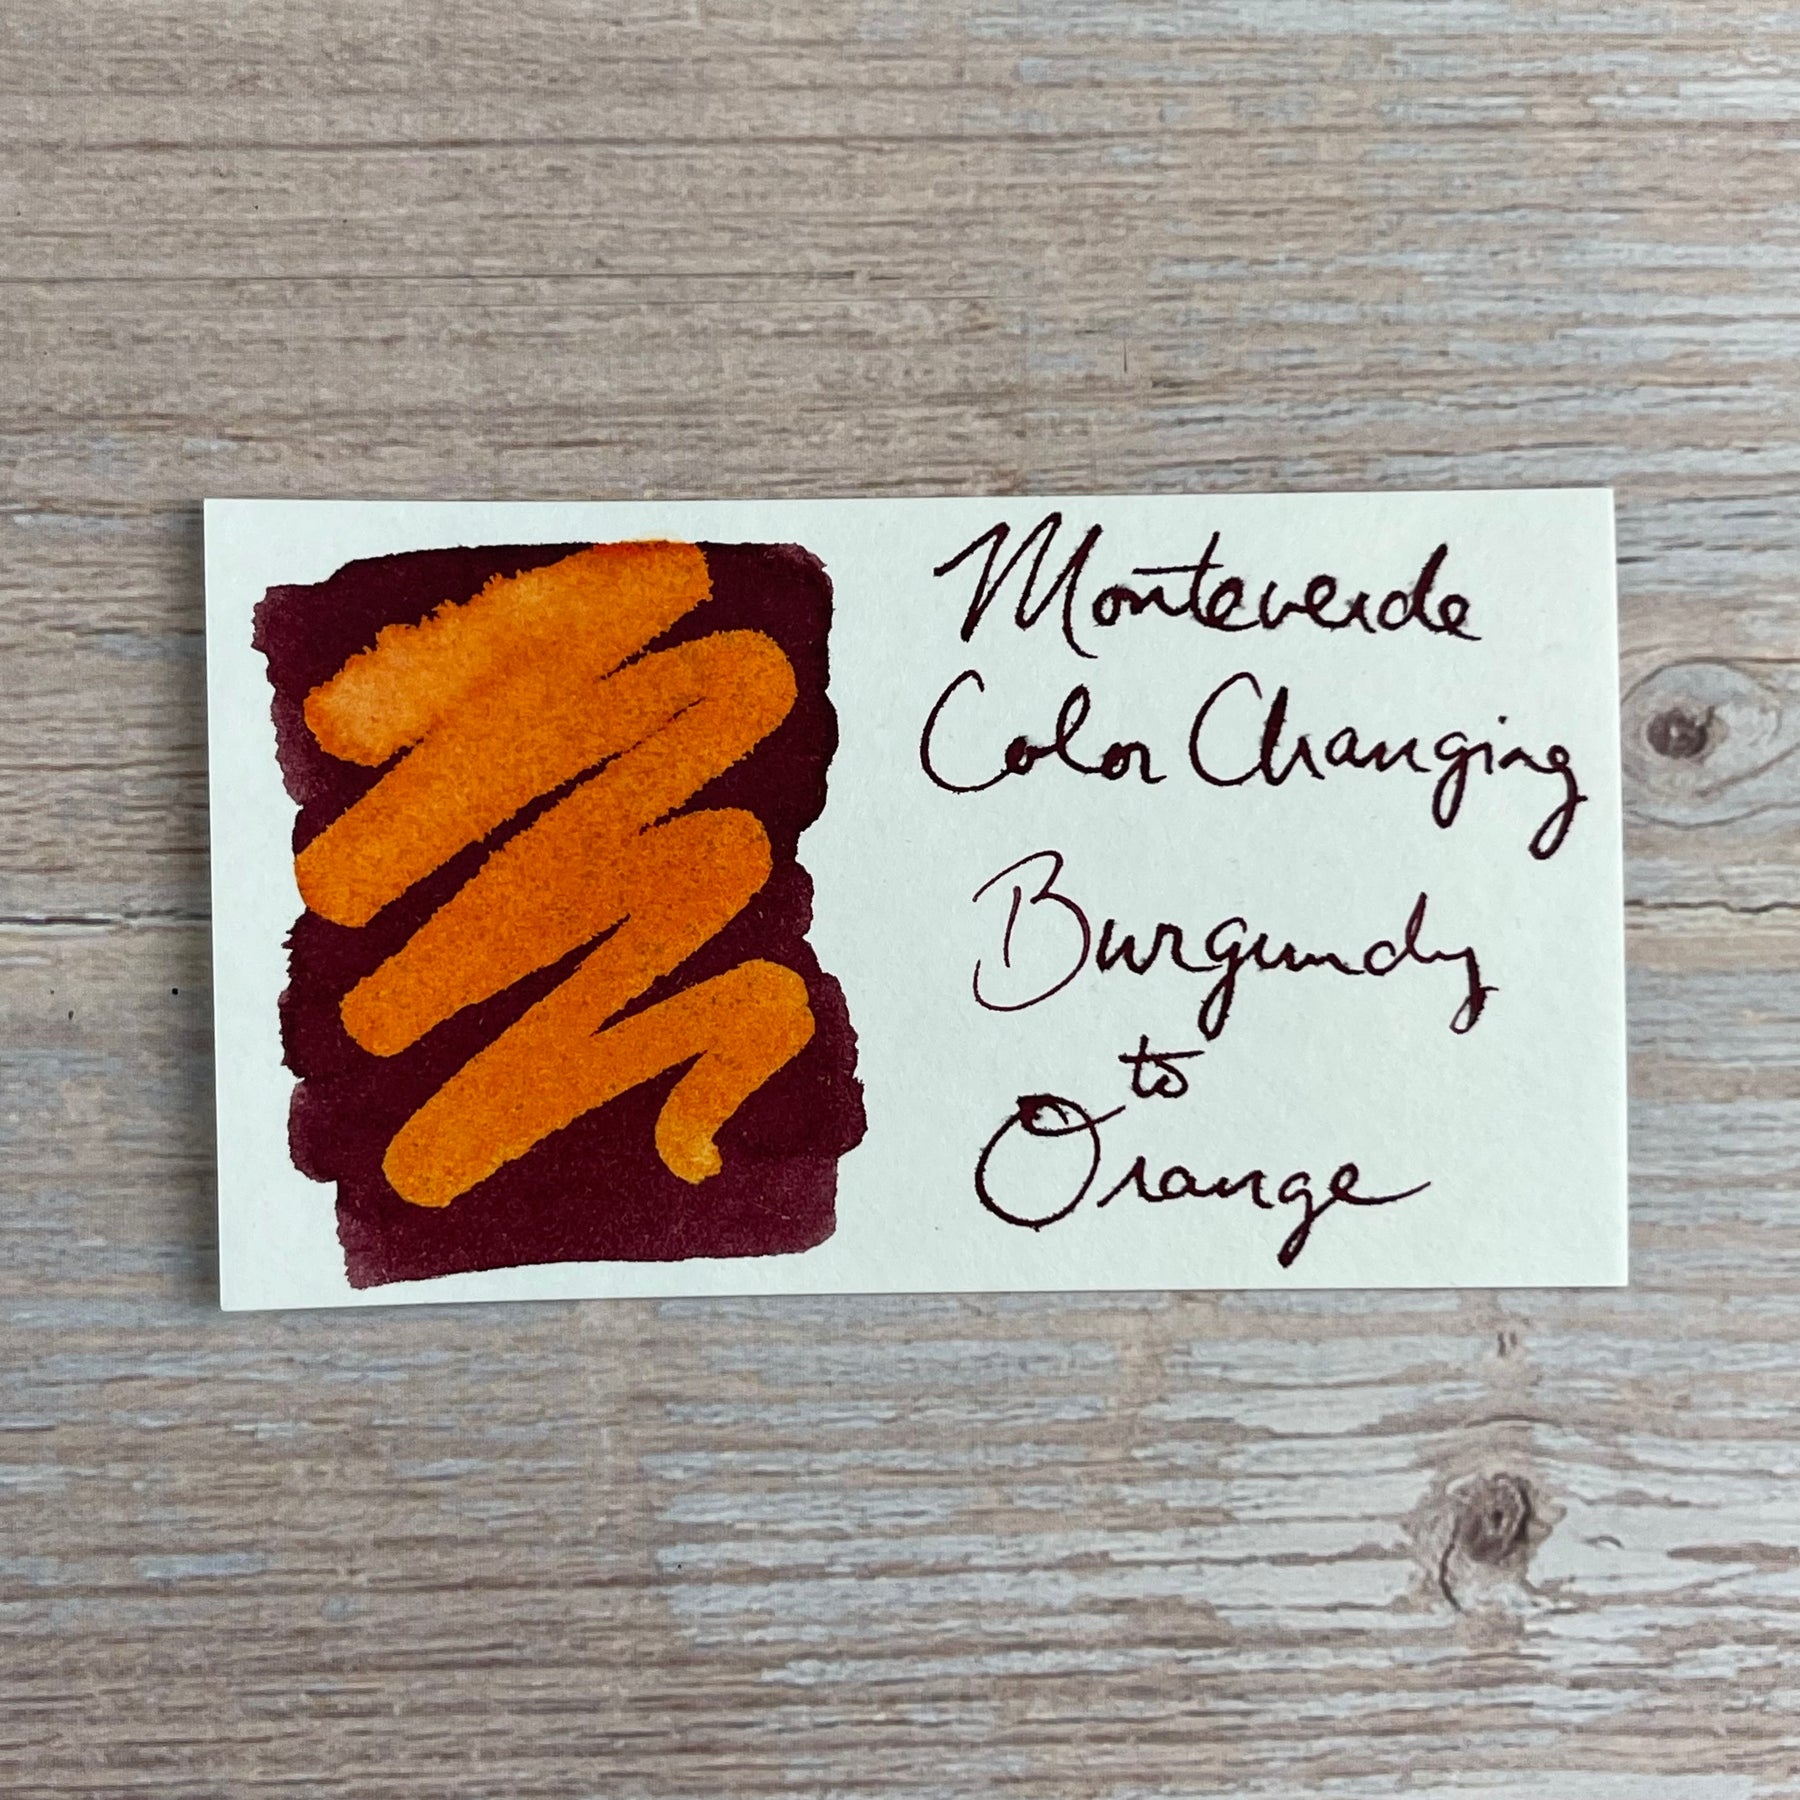 Monteverde
Color Changing
Burgundy
to
Orange